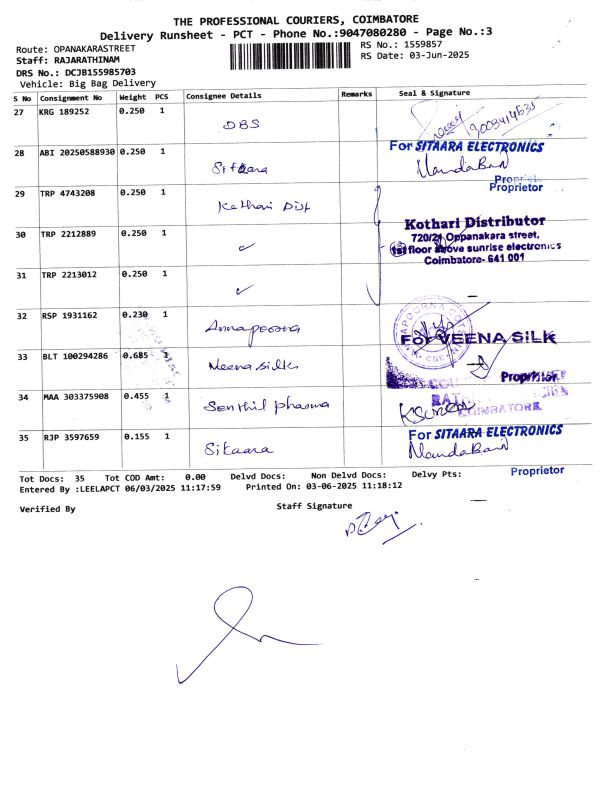 THE PROFESSIONAL COURIERS, COIMBATORE
Delivery Runsheet - PCT - Phone No.:9047080280 - Page No.:3
Route: OPANAKARASTREET
RS No.: 1559857
Staff: RAJARATHINAM
RS Date: 03-Jun-2025
DRS No.: DCJB155985703
Vehicle: Big Bag Delivery
S No Consignment No Weight PCS Consignee Details Remarks Seal & Signature
27 KRG 189252 0.250 1 DBS
28 ABI 20250588930 0.250 1 Sitaara
For SITAARA ELECTRONICS
Proprietor
29 TRP 4743208 0.250 1 Kothari Dist
30 TRP 2212889 0.250 1 ✓
Kothari Distributor
720/21 Oppanakara street,
1st floor above sunrise electronics
Coimbatore- 641 001
31 TRP 2213012 0.250 1 ✓
32 RSP 1931162 0.230 1 Annapoorna
For VEENA SILK
33 BLT 100294286 0.685 1 Veena silks
Proprietor
34 MAA 303375908 0.455 1 Senthil pharma
COIMBATORE
35 RJP 3597659 0.155 1 Sitaara
For SITAARA ELECTRONICS
Proprietor
Tot Docs: 35 Tot COD Amt: 0.00 Delvd Docs: Non Delvd Docs: Delvy Pts:
Entered By :LEELAPCT 06/03/2025 11:17:59 Printed On: 03-06-2025 11:18:12
Verified By
Staff Signature